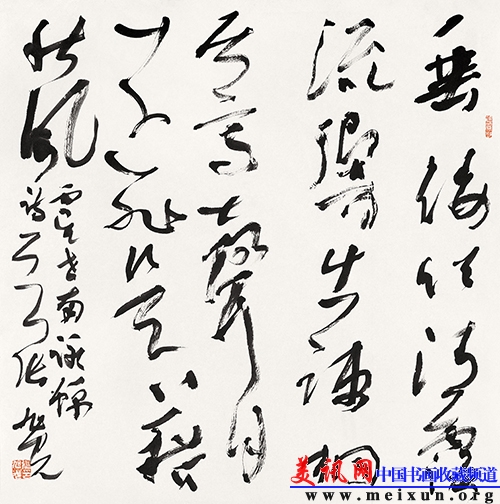 垂緌饮清露
流响出疏桐
居高声自
远非是藉
秋风
虞世南咏蝉
诗一首 张旭光
美讯网 中国书画收藏频道
www.meixun.org